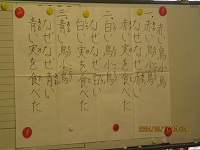 赤い鳥小鳥
一、赤い鳥小鳥
なぜなぜ赤い
赤い実を食べた
二、白い鳥小鳥
なぜなぜ白い
白い実を食べた
三、青い鳥小鳥
なぜなぜ青い
青い実を食べた